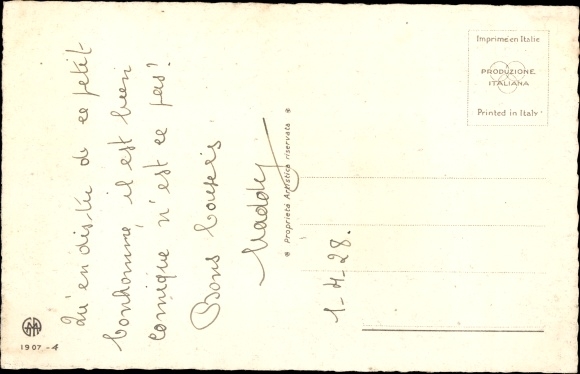 Qu'en dis-tu de ce petit
bonhomme il est bien
comique n'est ce pas!
Bons baisers
Maddy
1-4-28.
* Proprietà Artistica riservata *
Imprimé en Italie
PRODUZIONE
ITALIANA
Printed in Italy
1907-4